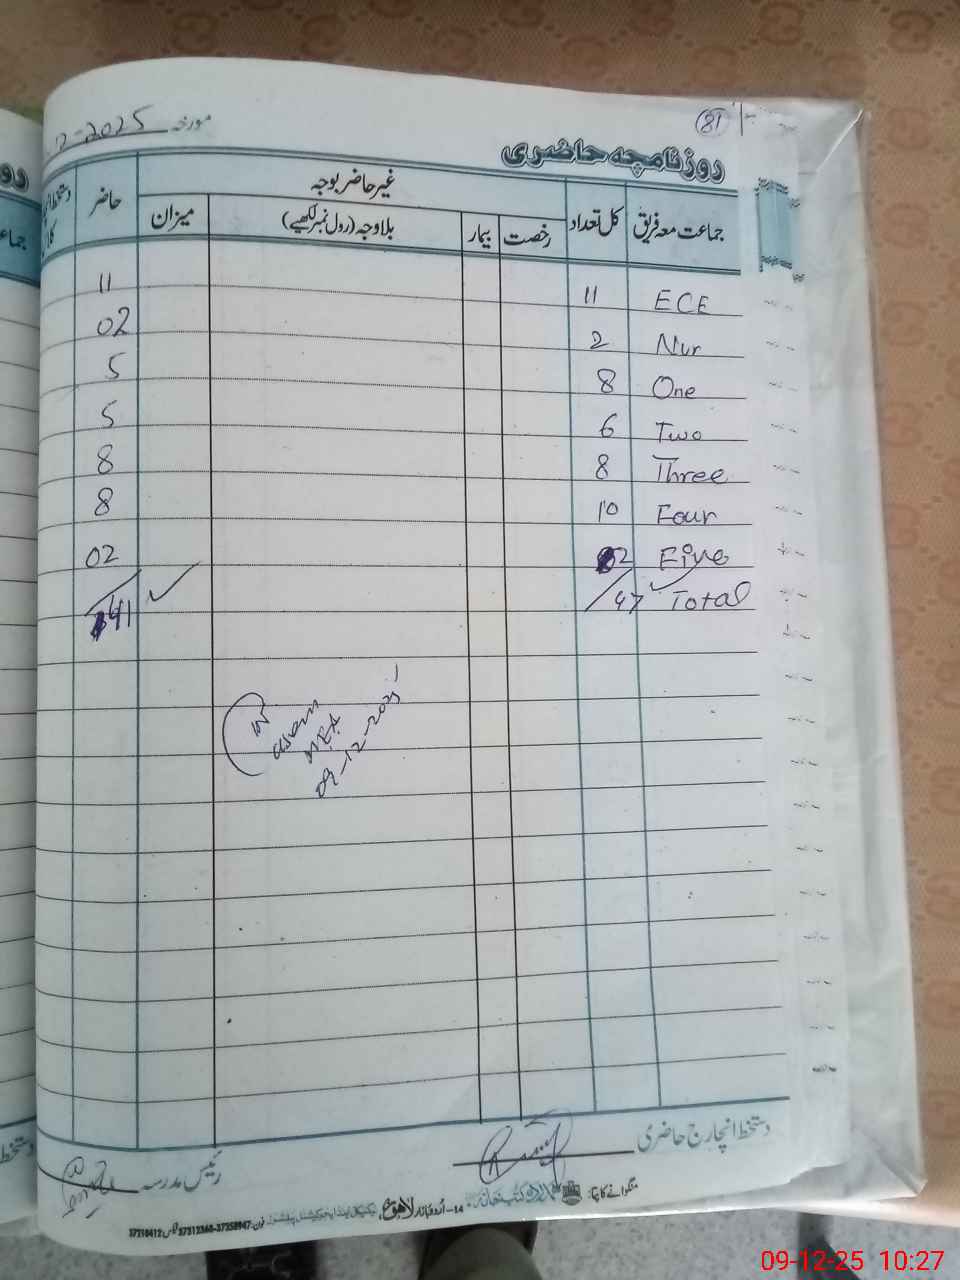 81
مورخہ 12-2025
روزنامچہ حاضری
جماعت معہ فریق کل تعداد غیر حاضر بوجہ حاضر
رخصت بیمار بلاوجہ (رول نمبر لکھیے) میزان
ECE 11 11
Nur 2 02
One 8 5
Two 6 5
Three 8 8
Four 10 8
Five 02 02
Total 47 41
09-12-2025
دستخط انچارج حاضری
رئیس مدرسہ
منگوانے کا پتا:
14-اُردو بازار لاہور
فون: 37358947-37312360 فیکس: 37210412
09-12-25 10:27